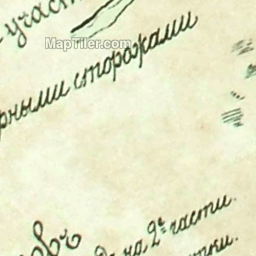 участ
MapTiler.com
рными сторожами
овъ
на 2ᵉ части.